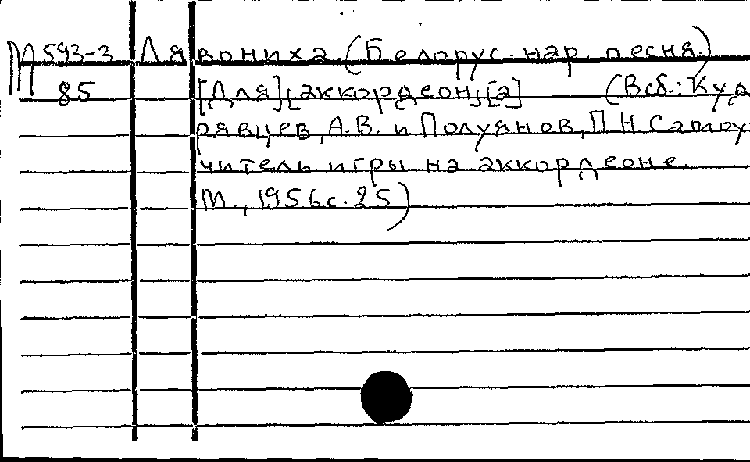 М 593-3 Лявониха (Белорус. нар. песня.)
85 [Для] аккордеон[а] (В сб.: Куд
рявцев, А.В. и Полуянов, П.Н. Самоу
читель игры на аккордеоне.
М., 1956 с. 25)